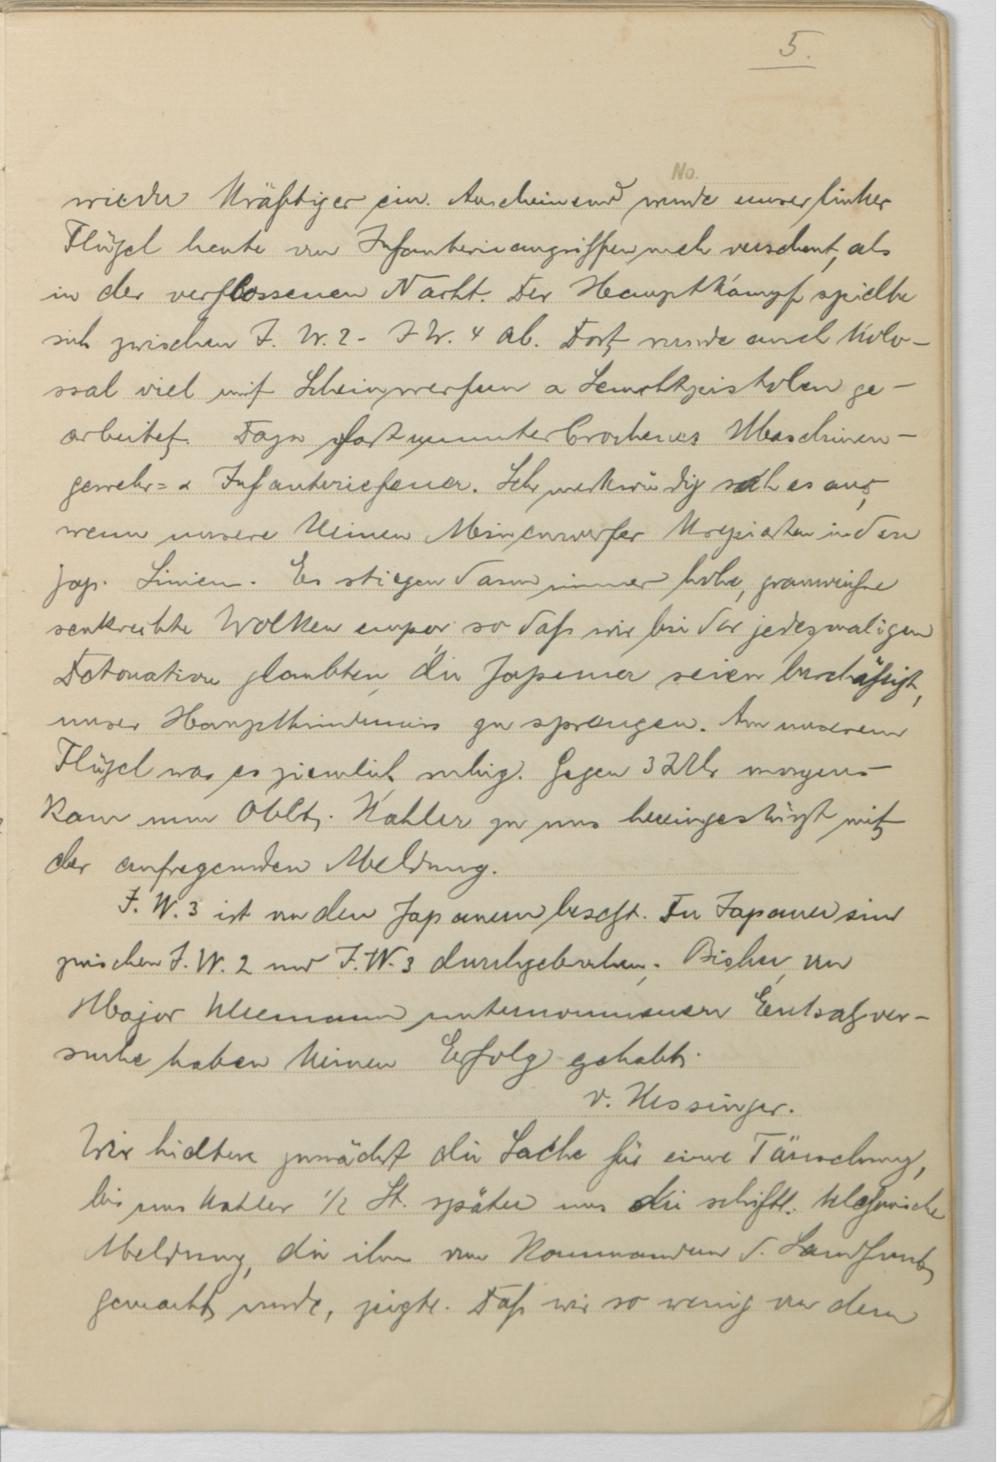 5.
No.
wieder kräftiger ein. Anscheinend wurde unser linker
Flügel heute von Infanterieangriffen mehr verschont, als
in der verflossenen Nacht. Der Hauptkampf spielte
sich zwischen I. W. 2 - I W. 4 ab. Dort wurde auch kolo-
ssal viel mit Scheinwerfern u Leuchtpistolen ge-
arbeitet. Dazu fast ununterbrochenes Maschinen-
gewehr= u Infanteriefeuer. Sehr merkwürdig sah es aus,
wenn unsere kleinen Minenwerfer krepierten in den
jap. Linien. Es stiegen dann immer hohe, grauweiße
senkrechte Wolken empor so daß wir bei der jedesmaligen
Detonation glaubten, die Japaner seien beschäftigt,
unser Haupthindernis zu sprengen. An unserem
Flügel war es ziemlich ruhig. Gegen 3 Uhr morgens
kam nun Oblt. Kahler zu uns hereingestürzt mit
der aufregenden Meldung.
I. W. 3 ist von den Japanern besetzt. Die Japaner sind
zwischen I. W. 2 und I. W. 3 durchgebrochen. Bisher von
Major Kleemann unternommenen Entsatzver-
suche haben keinen Erfolg gehabt.
v. Kessinger.
Wir hielten zunächst die Sache für eine Täuschung,
bis uns Kahler 1/2 St. später uns die schriftl. telefonische
Meldung, die ihm vom Kommandeur d. Landfront
gemacht wurde, zeigte. Daß wir so wenig von dem